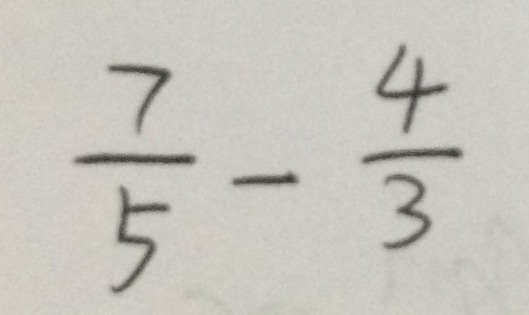 7/5 - 4/3